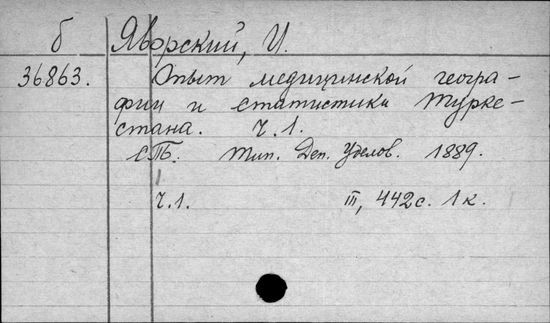 б Яворский, И.
36863. Опыт медицинской геогра-
фии и статистики Турке-
стана. Ч.1.
СПб. Тип. Деп. Уделов. 1889.
Ч.1. III, 442с. 1к.